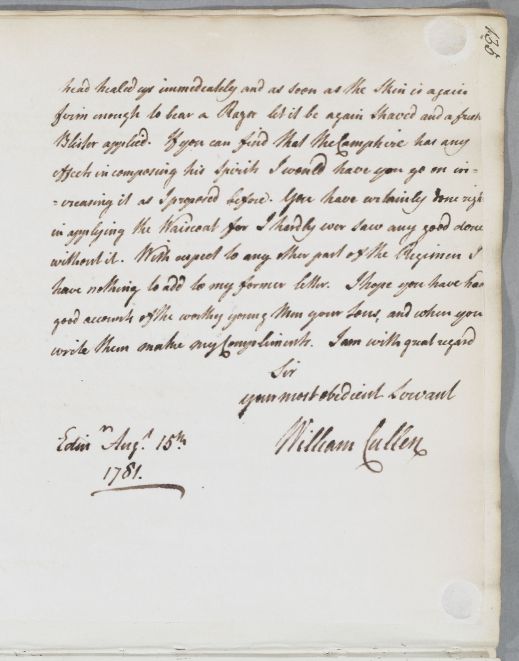 135
head healed up immediately and as soon as the Skin is again
firm enough to bear a Razor let it be again shaved and a fresh
Blister applied. If you can find that the Camphire has any
effects in composing his Spirits I would have you go on in-
-creasing it as I proposed before. You have certainly done right
in applying the Waircoat for I hardly ever saw any good done
without it. With respect to any other part of the Regimen I
have nothing to add to my former letter. I hope you have had
good accounts of the worthy young Men your Sons, and when you
write them make my Compliments. I am with great regard
Sir
your most obedient Servant
William Cullen
Edinr Augt. 15th
1781.